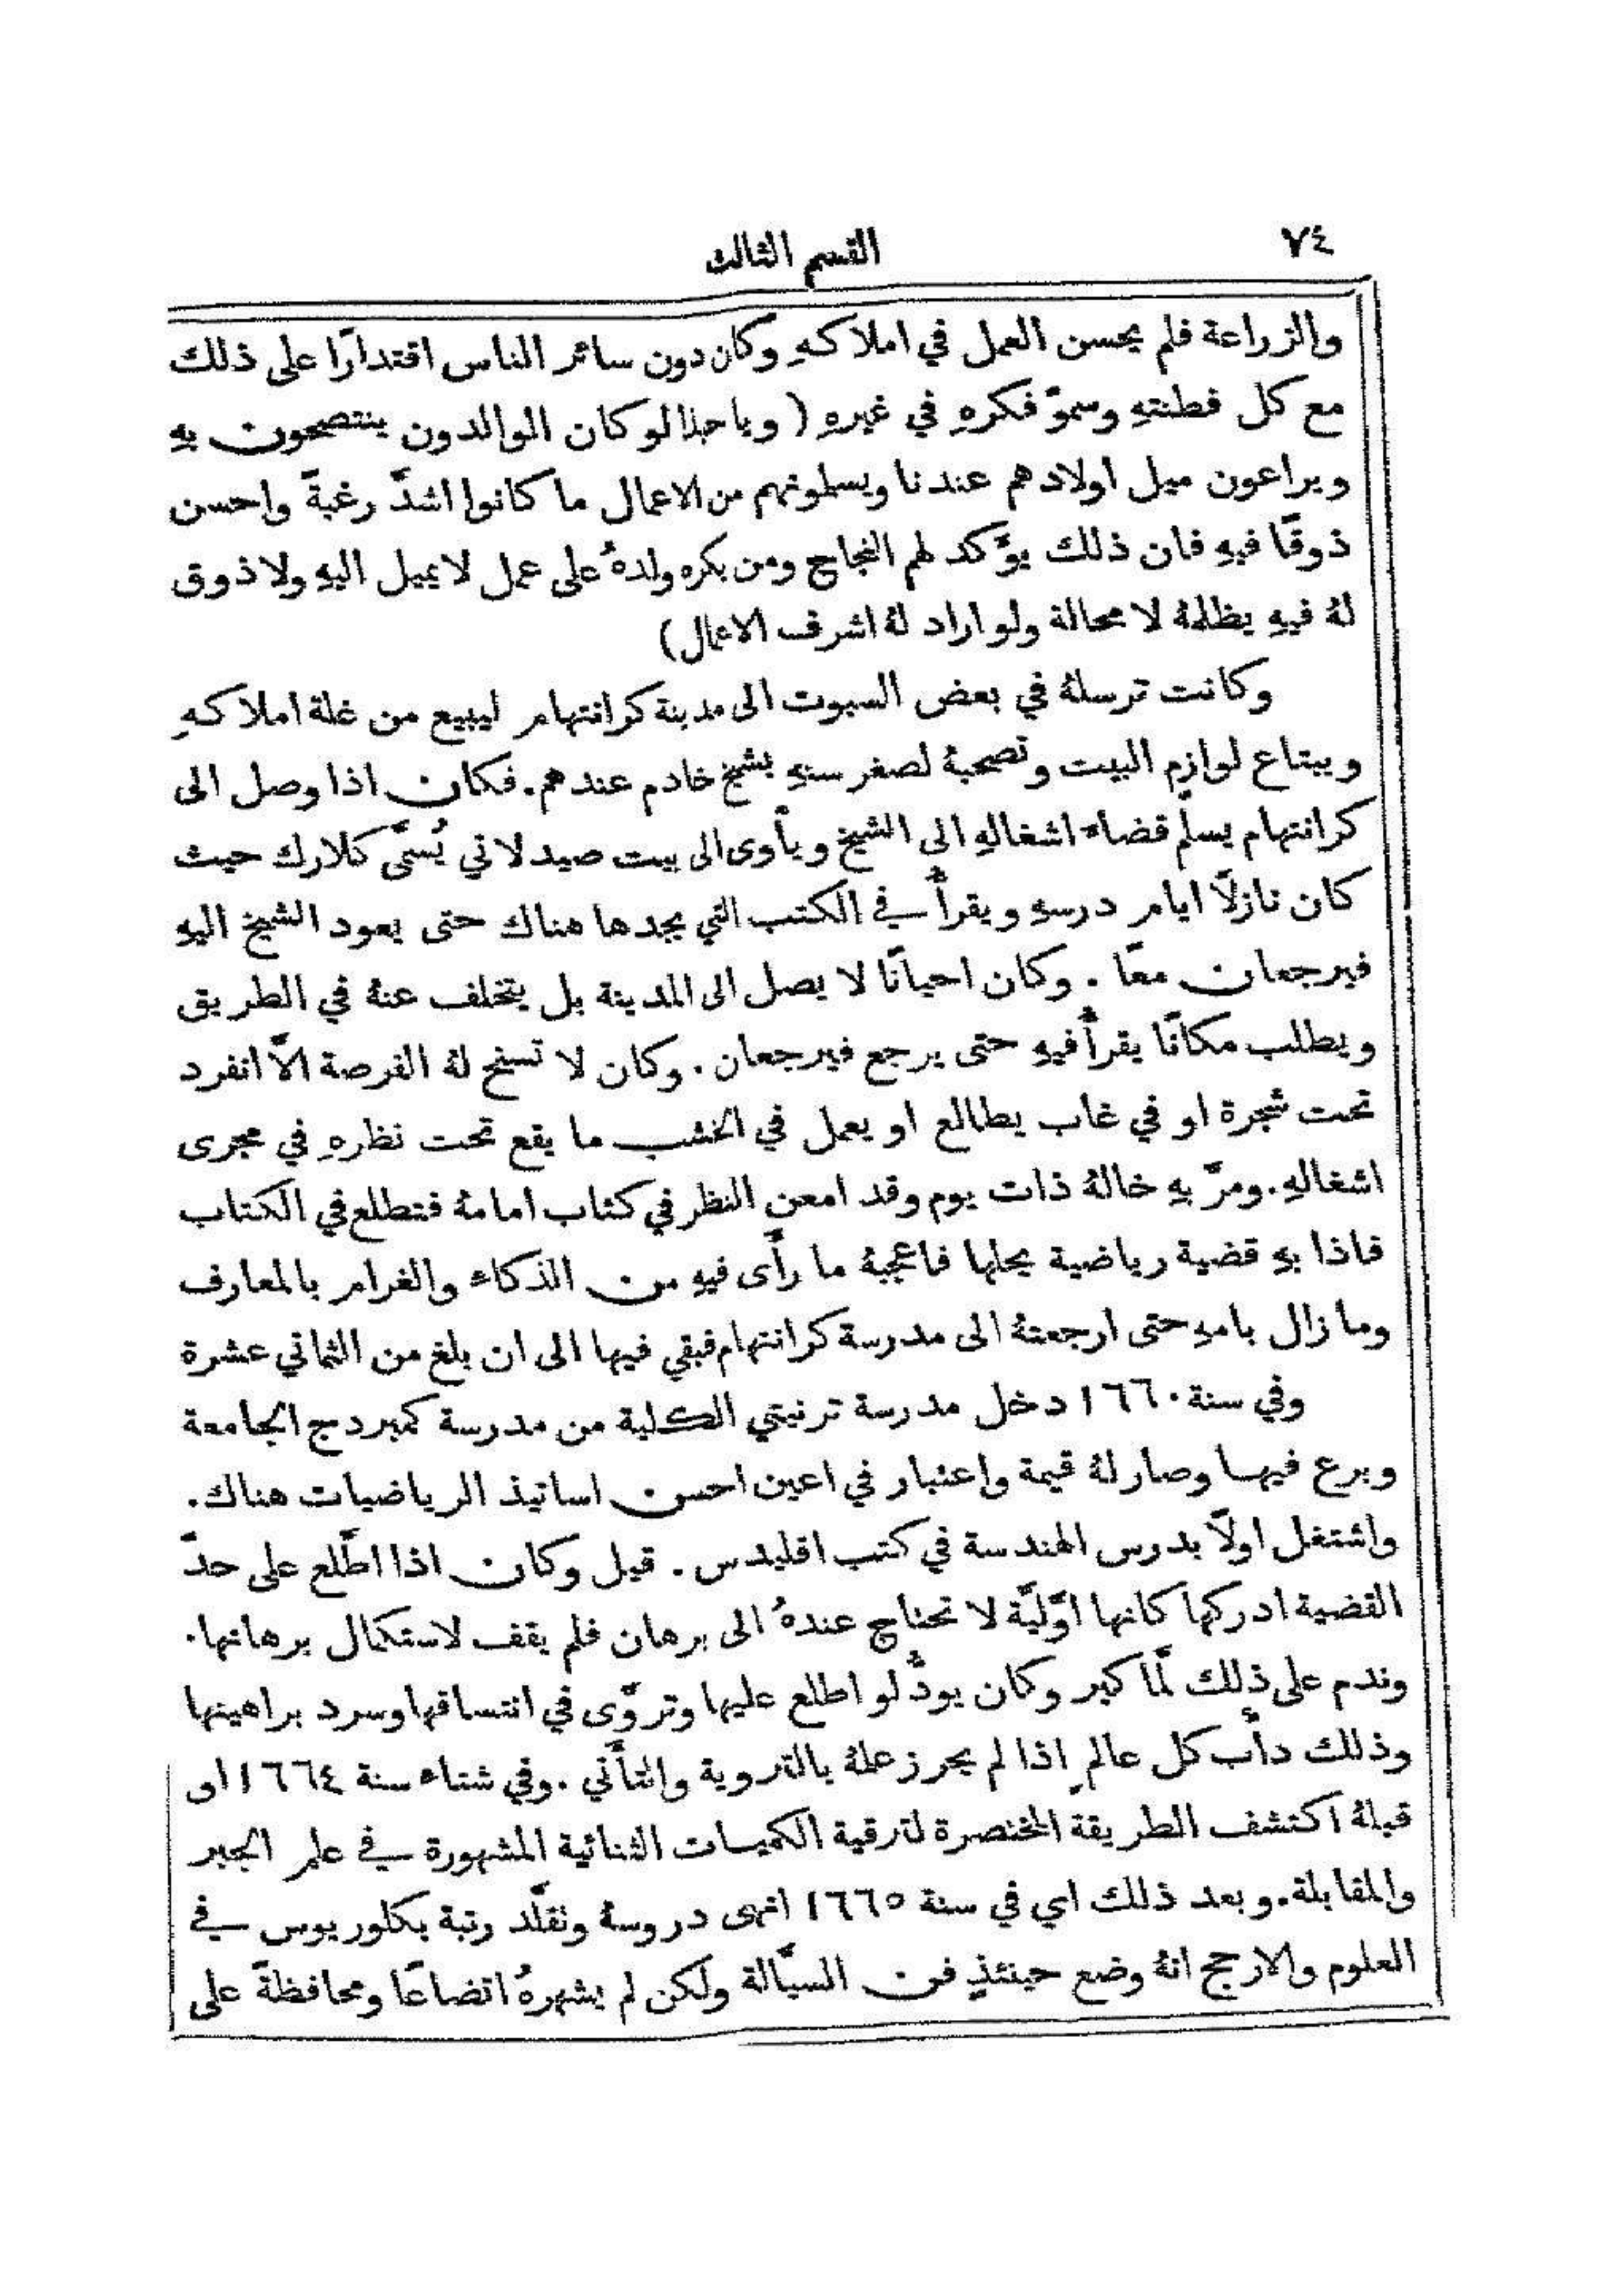 ٧٤ القسم الثالث
والزراعة فلم يحسن العمل في املاكهِ وكان دون سائر الناس اقتدارًا على ذلك
مع كل فطنتهِ وسموّ فكرهِ في غيرهِ ( ويا حبذا لو كان الوالدون ينتصحون بهِ
ويراعون ميل اولادهم عندنا ويسلمونهم من الاعمال ما كانوا اشدّ رغبةً واحسن
ذوقًا فيهِ فان ذلك يؤكد لهم النجاح ومن يكره ولدهُ على عمل لا يميل اليهِ ولا ذوق
لهُ فيهِ يظلمهُ لا محالة ولو اراد لهُ اشرف الاعمال)
وكانت ترسلهُ في بعض السبوت الى مدينة كرانتهام ليبيع من غلة املاكهِ
ويبتاع لوازم البيت وتصحبهُ لصغر سنهِ بشيخ خادم عندهم. فكان اذا وصل الى
كرانتهام يسلّم قضاء اشغالهِ الى الشيخ ويأوى الى بيت صيدلاني يُسمَّى كلارك حيث
كان نازلًا ايام درسهِ ويقرأُ في الكتب التي يجدها هناك حتى يعود الشيخ اليهِ
فيرجعان معًا . وكان احيانًا لا يصل الى المدينة بل يتخلف عنهُ في الطريق
ويطلب مكانًا يقرأُ فيهِ حتى يرجع فيرجعان. وكان لا تسنح لهُ الفرصة الَّا انفرد
تحت شجرة او في غاب يطالع او يعمل في الخشب ما يقع تحت نظرهِ في مجرى
اشغالهِ. ومرَّ بهِ خالهُ ذات يوم وقد امعن النظر في كتاب امامهُ فتطلع في الكتاب
فاذا بهِ قضية رياضية يحلها فاعجبهُ ما رأَى فيهِ من الذكاء والغرام بالمعارف
وما زال بامهِ حتى ارجعتهُ الى مدرسة كرانتهام فبقي فيها الى ان بلغ من الثماني عشرة
وفي سنة ١٦٦٠ دخل مدرسة ترنيتي الكلية من مدرسة كمبردج الجامعة
وبرع فيها وصار لهُ قيمة واعتبار في اعين احسن اساتيذ الرياضيات هناك.
واشتغل اولًا بدرس الهندسة في كتب اقليدس . قيل وكان اذا اطَّلع على حدّ
القضية ادركها كانها اوَّليَّة لا تحتاج عندهُ الى برهان فلم يقف لاستكمال برهانها.
وندم على ذلك لمَّا كبر وكان يودُّ لو اطلع عليها وتروَّى في انتساقها وسرد براهينها
وذلك دأْب كل عالمٍ اذا لم يحرز علمهُ بالتروية والتأَني .وفي شتاء سنة ١٦٦٤ او
قبلهُ اكتشف الطريقة المختصرة لترقية الكميات الثنائية المشهورة في علم الجبر
والمقابلة. وبعد ذلك اي في سنة ١٦٦٥ انهى دروسهُ وتقلَّد رتبة بكلوريوس في
العلوم والارجح انهُ وضع حينئذٍ فن السيَّالة ولكن لم يشهرهُ اتضاعًا ومحافظةً على